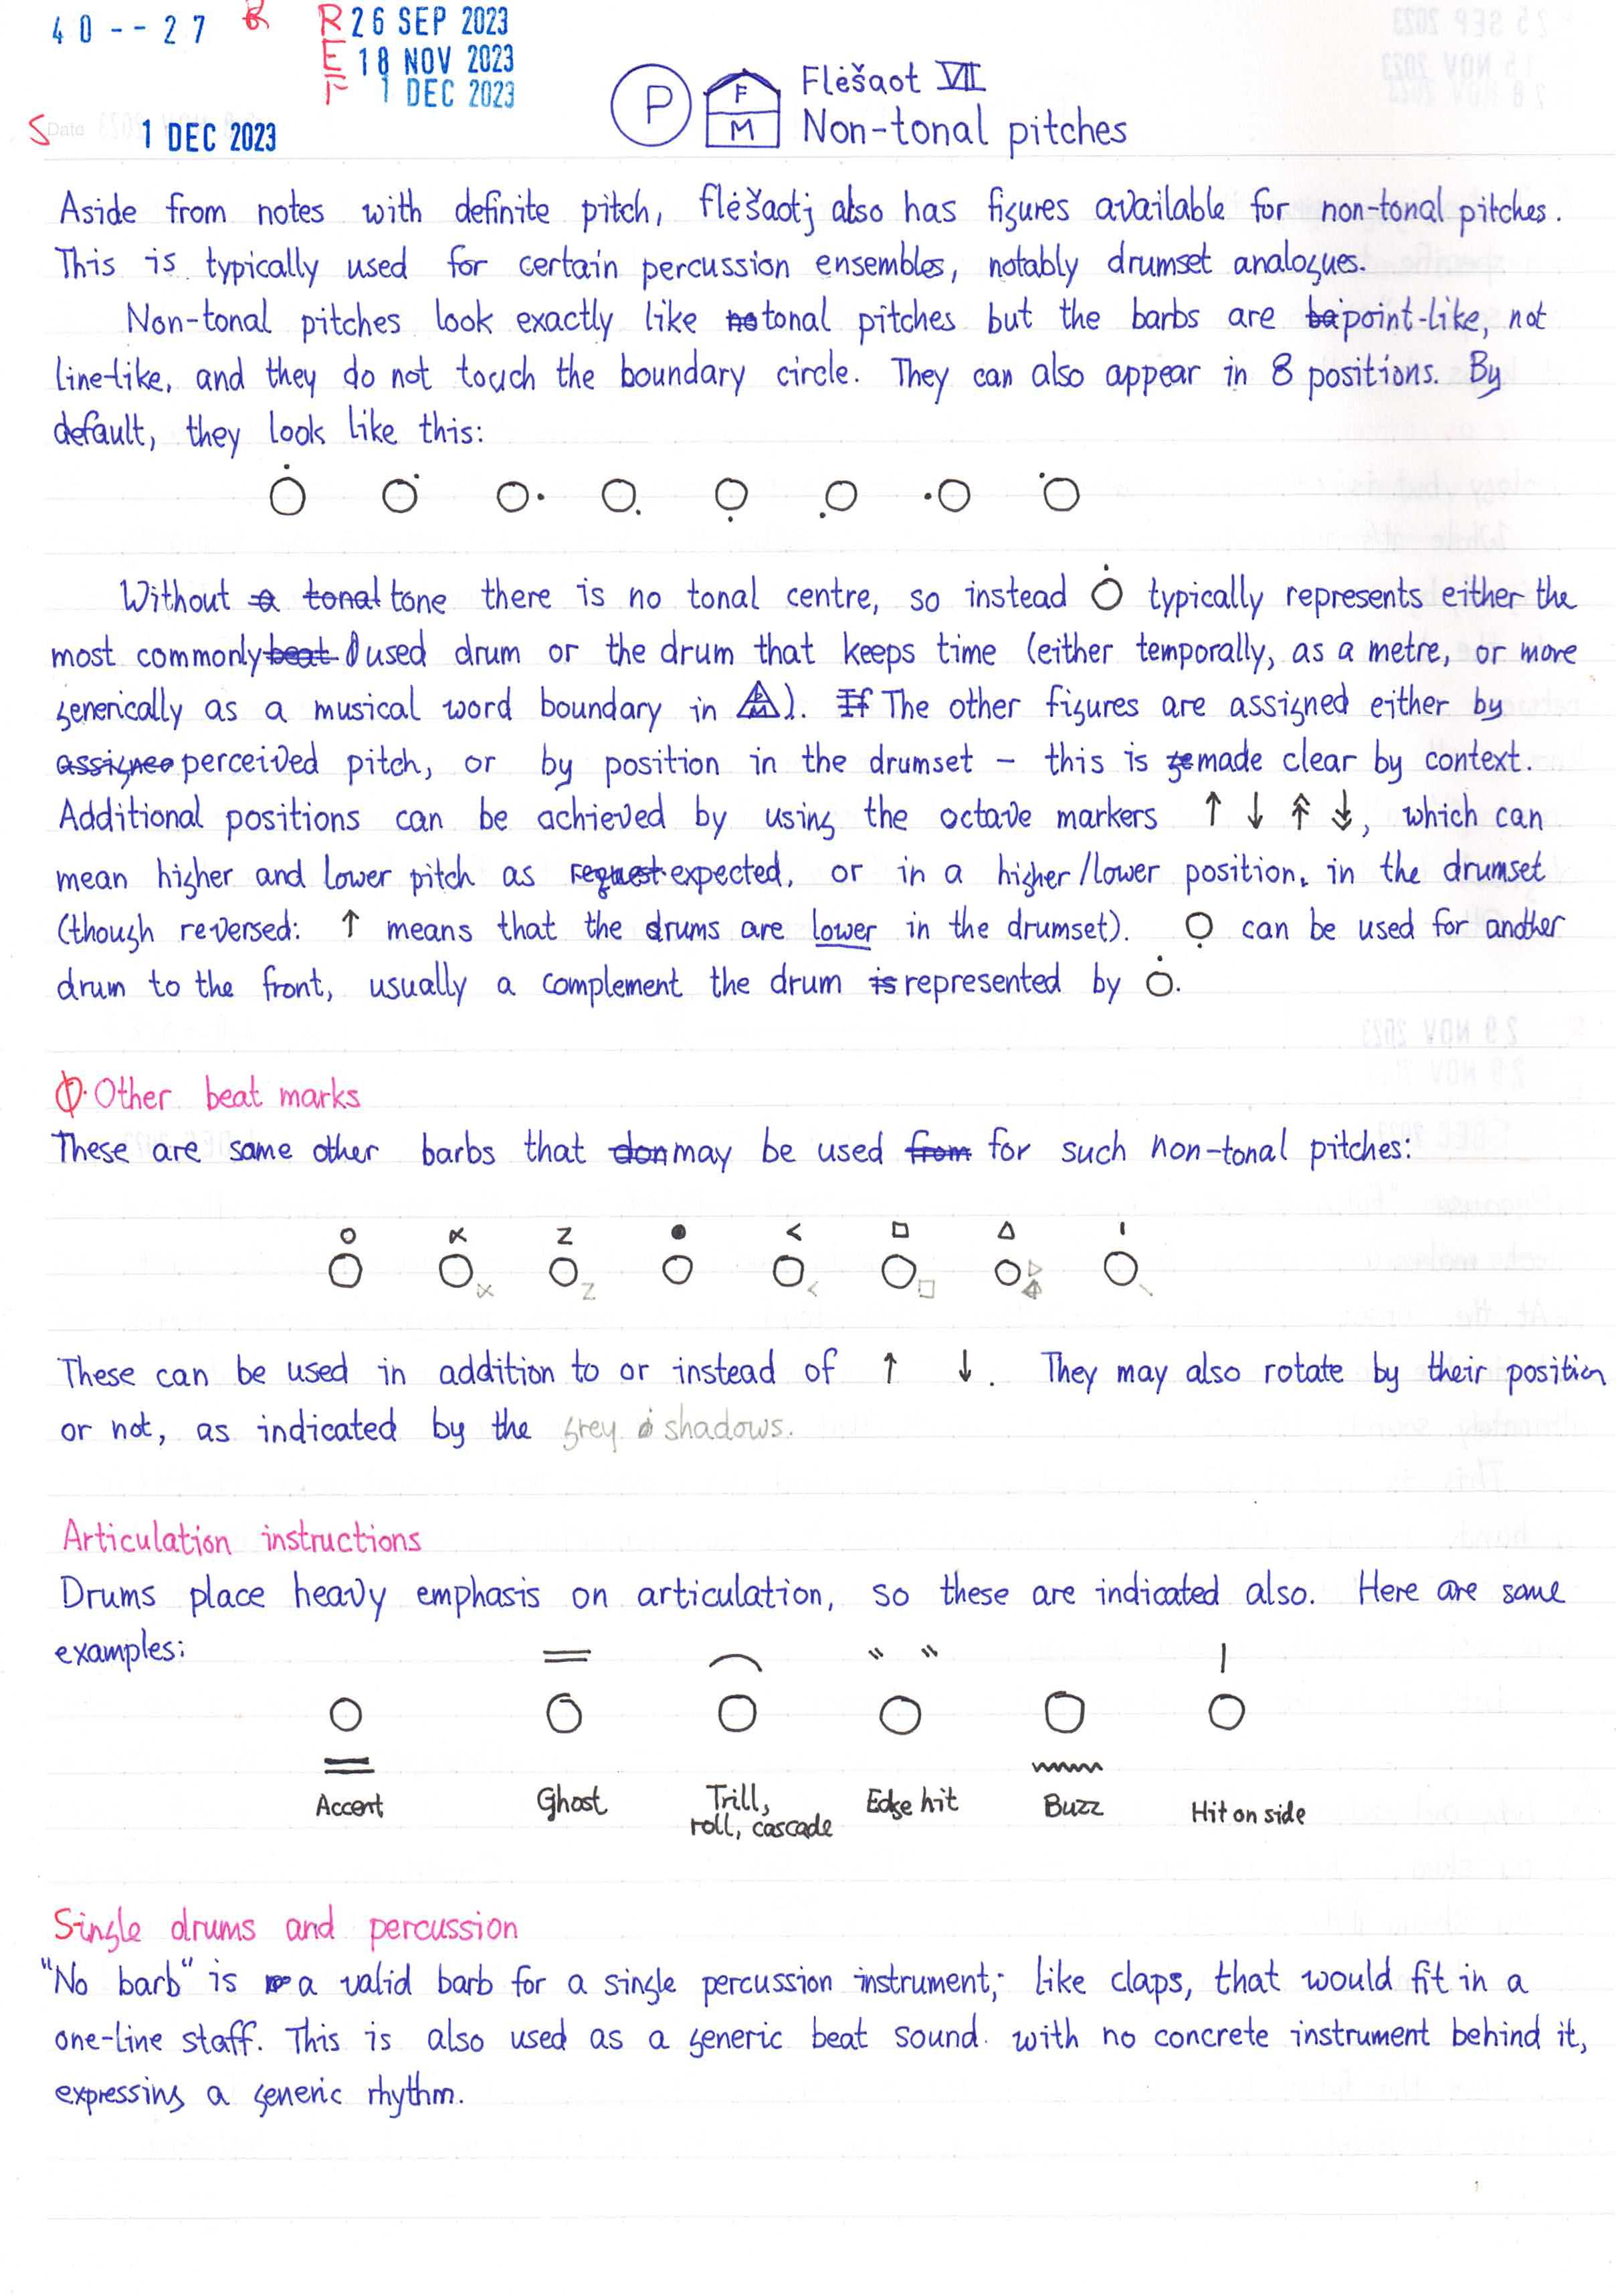 40--27
R 26 SEP 2023
E 18 NOV 2023
F 1 DEC 2023
S Date 1 DEC 2023
P F M Flėšaot VII
Non-tonal pitches
Aside from notes with definite pitch, flėšaotj also has figures available for non-tonal pitches.
This is typically used for certain percussion ensembles, notably drumset analogues.
Non-tonal pitches look exactly like no tonal pitches but the barbs are ba point-like, not
line-like, and they do not touch the boundary circle. They can also appear in 8 positions. By
default, they look like this:
Without a tonal tone there is no tonal centre, so instead typically represents either the
most commonly beat used drum or the drum that keeps time (either temporally, as a metre, or more
generically as a musical word boundary in ). If The other figures are assigned either by
assigne perceived pitch, or by position in the drumset – this is ge made clear by context.
Additional positions can be achieved by using the octave markers ↑ ↓ ↟ ↡, which can
mean higher and lower pitch as request expected, or in a higher/lower position, in the drumset
(though reversed: ↑ means that the drums are lower in the drumset). can be used for another
drum to the front, usually a complement the drum is represented by .
Other beat marks
These are some other barbs that don may be used from for such non-tonal pitches:
These can be used in addition to or instead of ↑ ↓. They may also rotate by their position
or not, as indicated by the grey shadows.
Articulation instructions
Drums place heavy emphasis on articulation, so these are indicated also. Here are some
examples:
Accent Ghost Trill, Edge hit Buzz Hit on side
roll, cascade
Single drums and percussion
"No barb" is a valid barb for a single percussion instrument, like claps, that would fit in a
one-line staff. This is also used as a generic beat sound with no concrete instrument behind it,
expressing a generic rhythm.